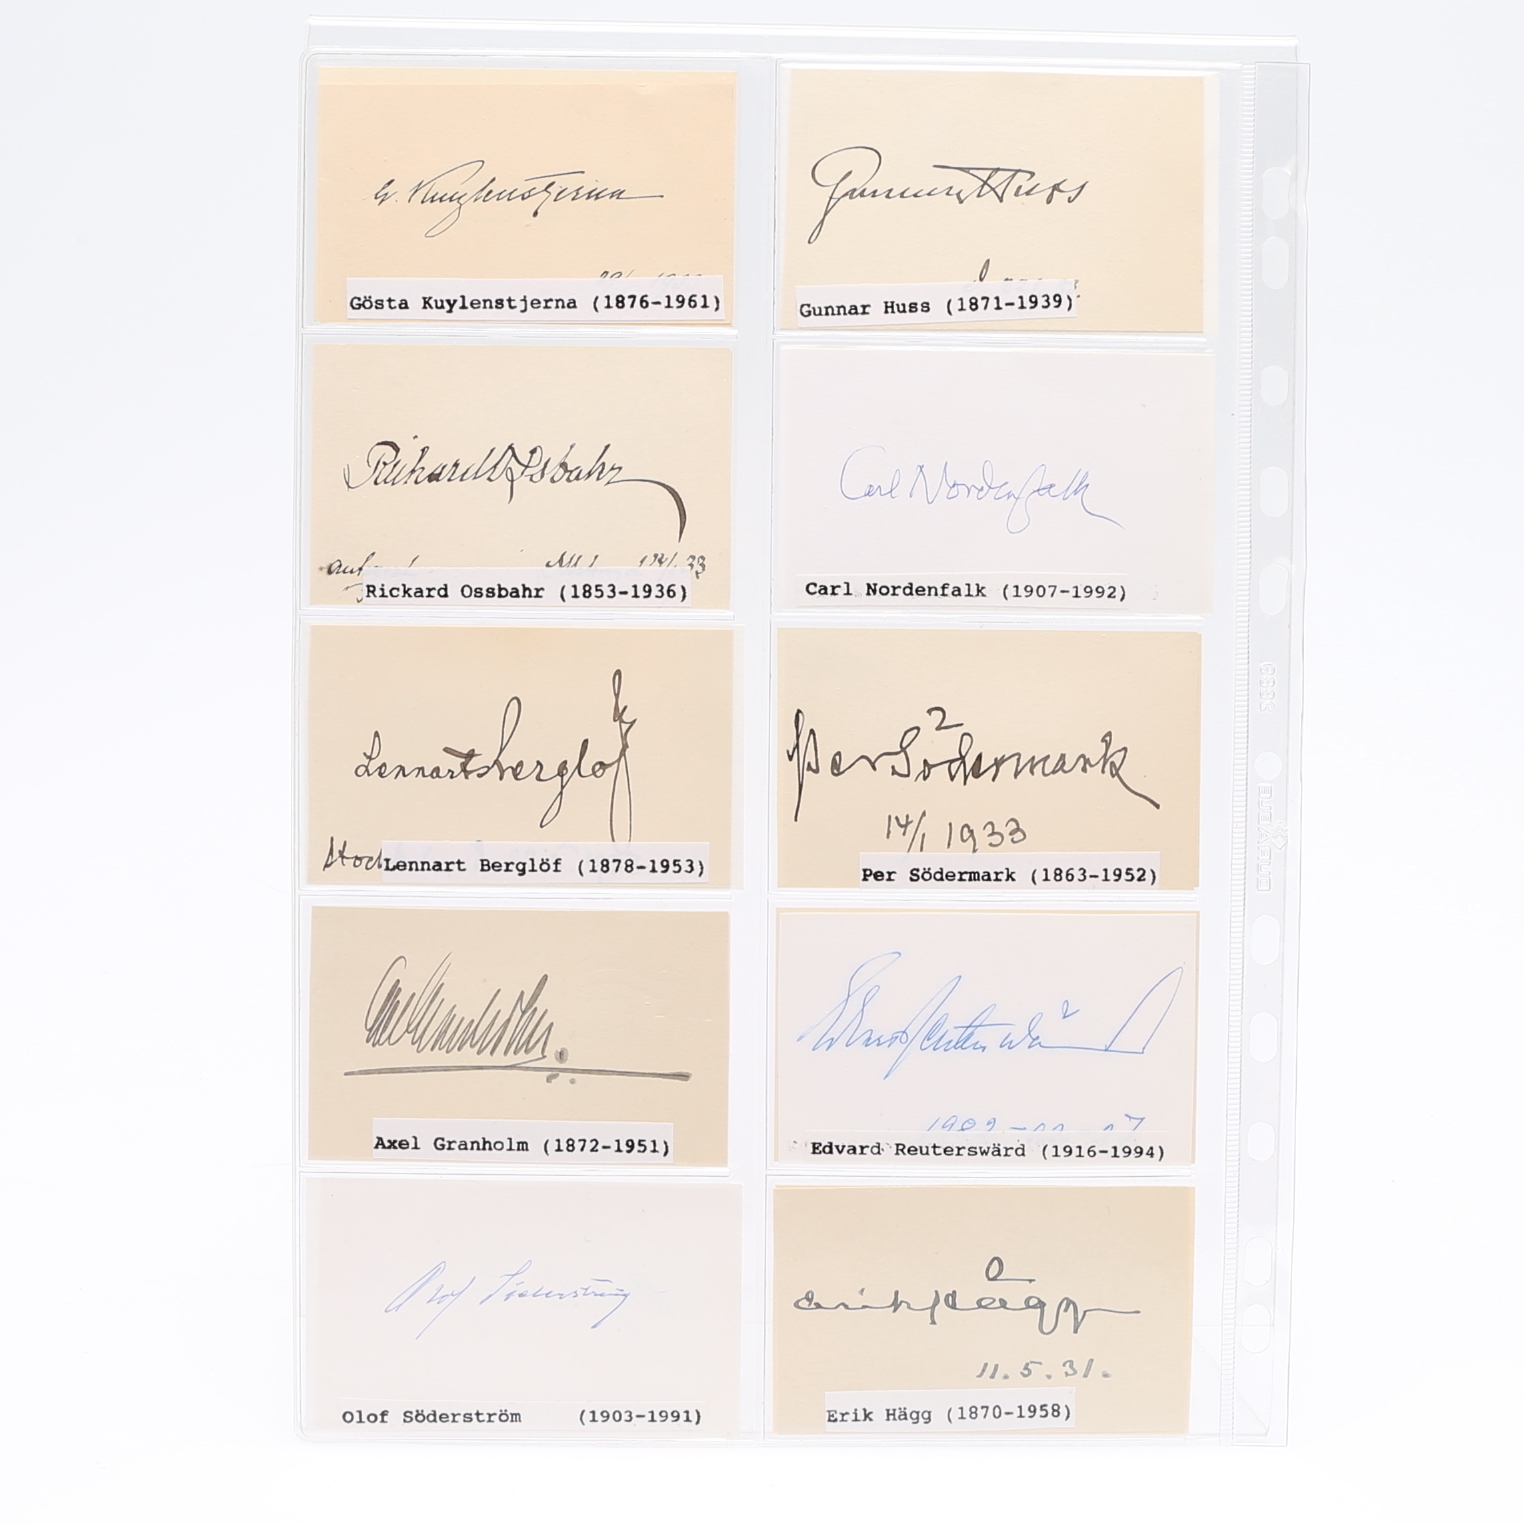 G. Kuylenstjerna
Gösta Kuylenstjerna (1876-1961)
Gunnar Huss
Gunnar Huss (1871-1939)
Richard Ossbahr
Rickard Ossbahr (1853-1936)
Carl Nordenfalk
Carl Nordenfalk (1907-1992)
Lennart Berglöf
Lennart Berglöf (1878-1953)
Per Södermark
14/1 1933
Per Södermark (1863-1952)
Axel Granholm
Axel Granholm (1872-1951)
Edvard Reuterswärd
Edvard Reuterswärd (1916-1994)
Olof Söderström
Olof Söderström (1903-1991)
Erik Hägg
11.5.31.
Erik Hägg (1870-1958)